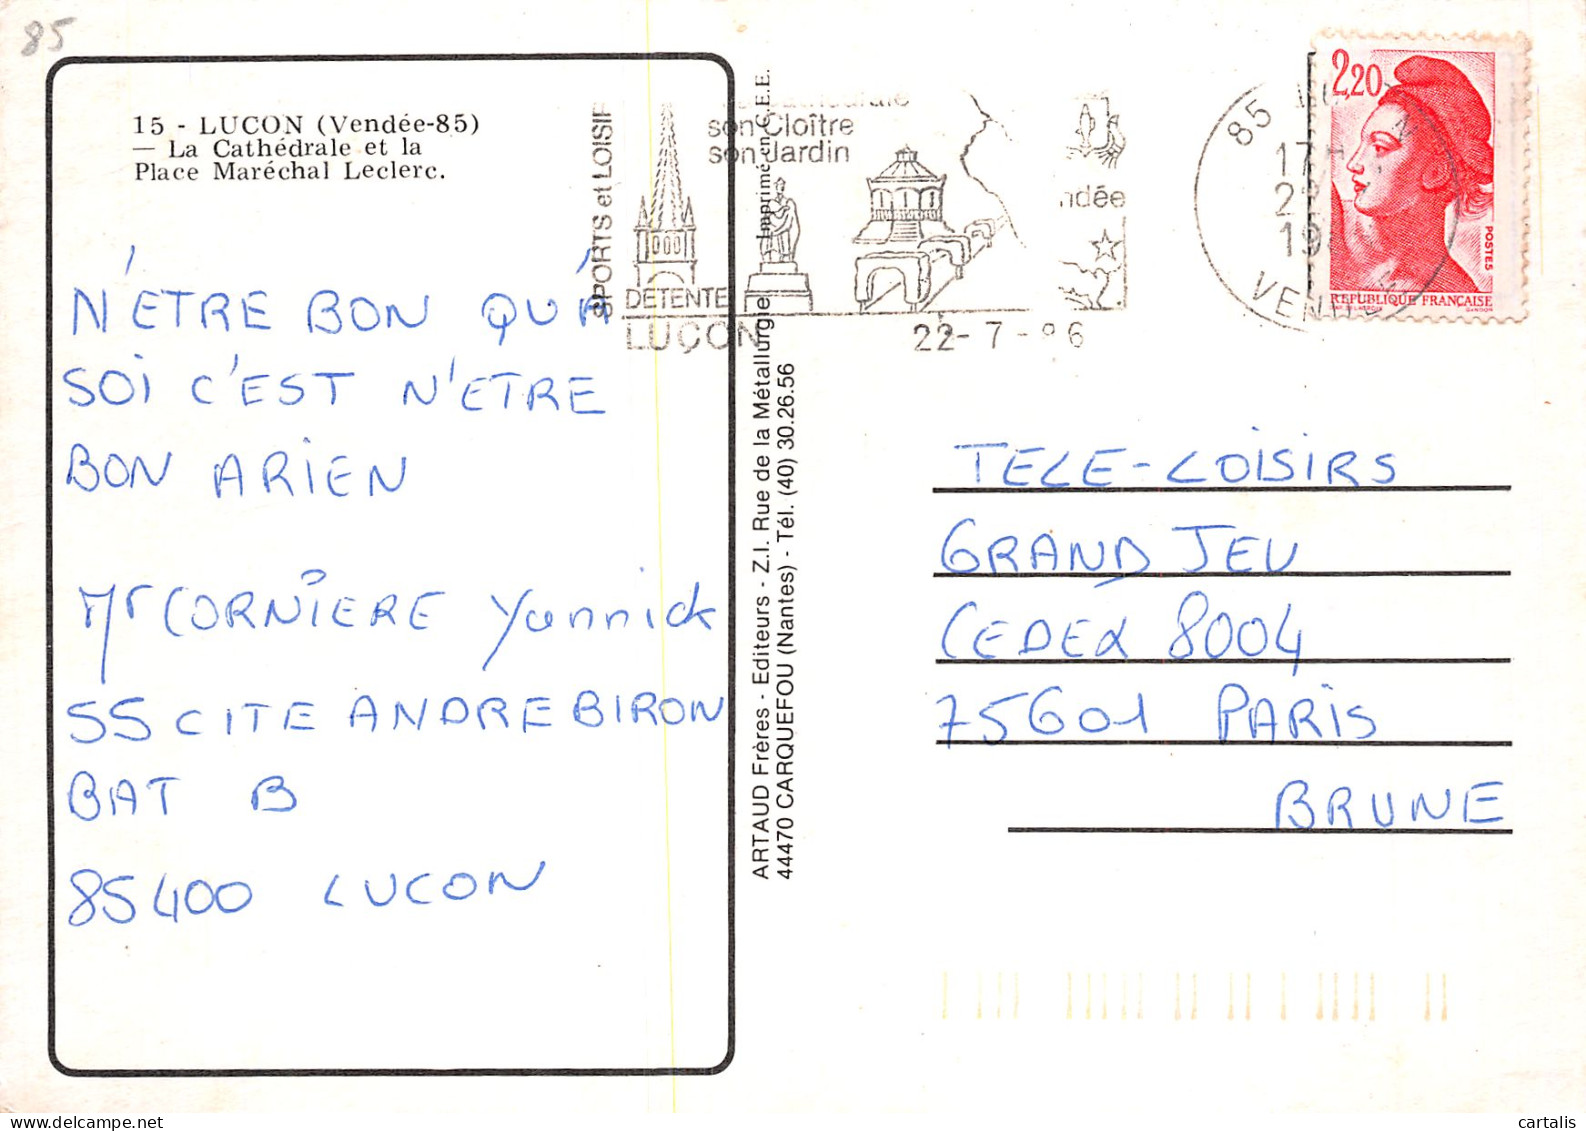 85
15 - LUCON (Vendée-85)
— La Cathédrale et la
Place Maréchal Leclerc.
N'ETRE BON QU'A
SOI C'EST N'ETRE
BON ARIEN
Mr CORNIERE Yannick
55 CITE ANDRE BIRON
BAT B
85400 LUCON
SPORTS et LOISIR
son Cloître
son Jardin
DETENTE
LUÇON
ndée
22-7-86
ARTAUD Frères - Editeurs - Z.I. Rue de la Métallurgie Imprimé en C.E.E.
44470 CARQUEFOU (Nantes) - Tél. (40) 30.26.56
85
17
19
VEN
2,20
POSTES
REPUBLIQUE FRANÇAISE
GANDON
TELE-LOISIRS
GRAND JEU
CEDEX 8004
75601 PARIS
BRUNE
cartalis